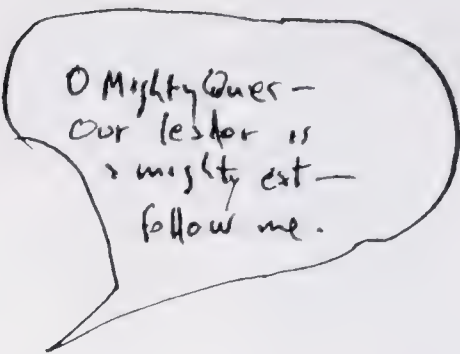 O Mighty Ones —
Our leader is
a mighty cat —
follow me.